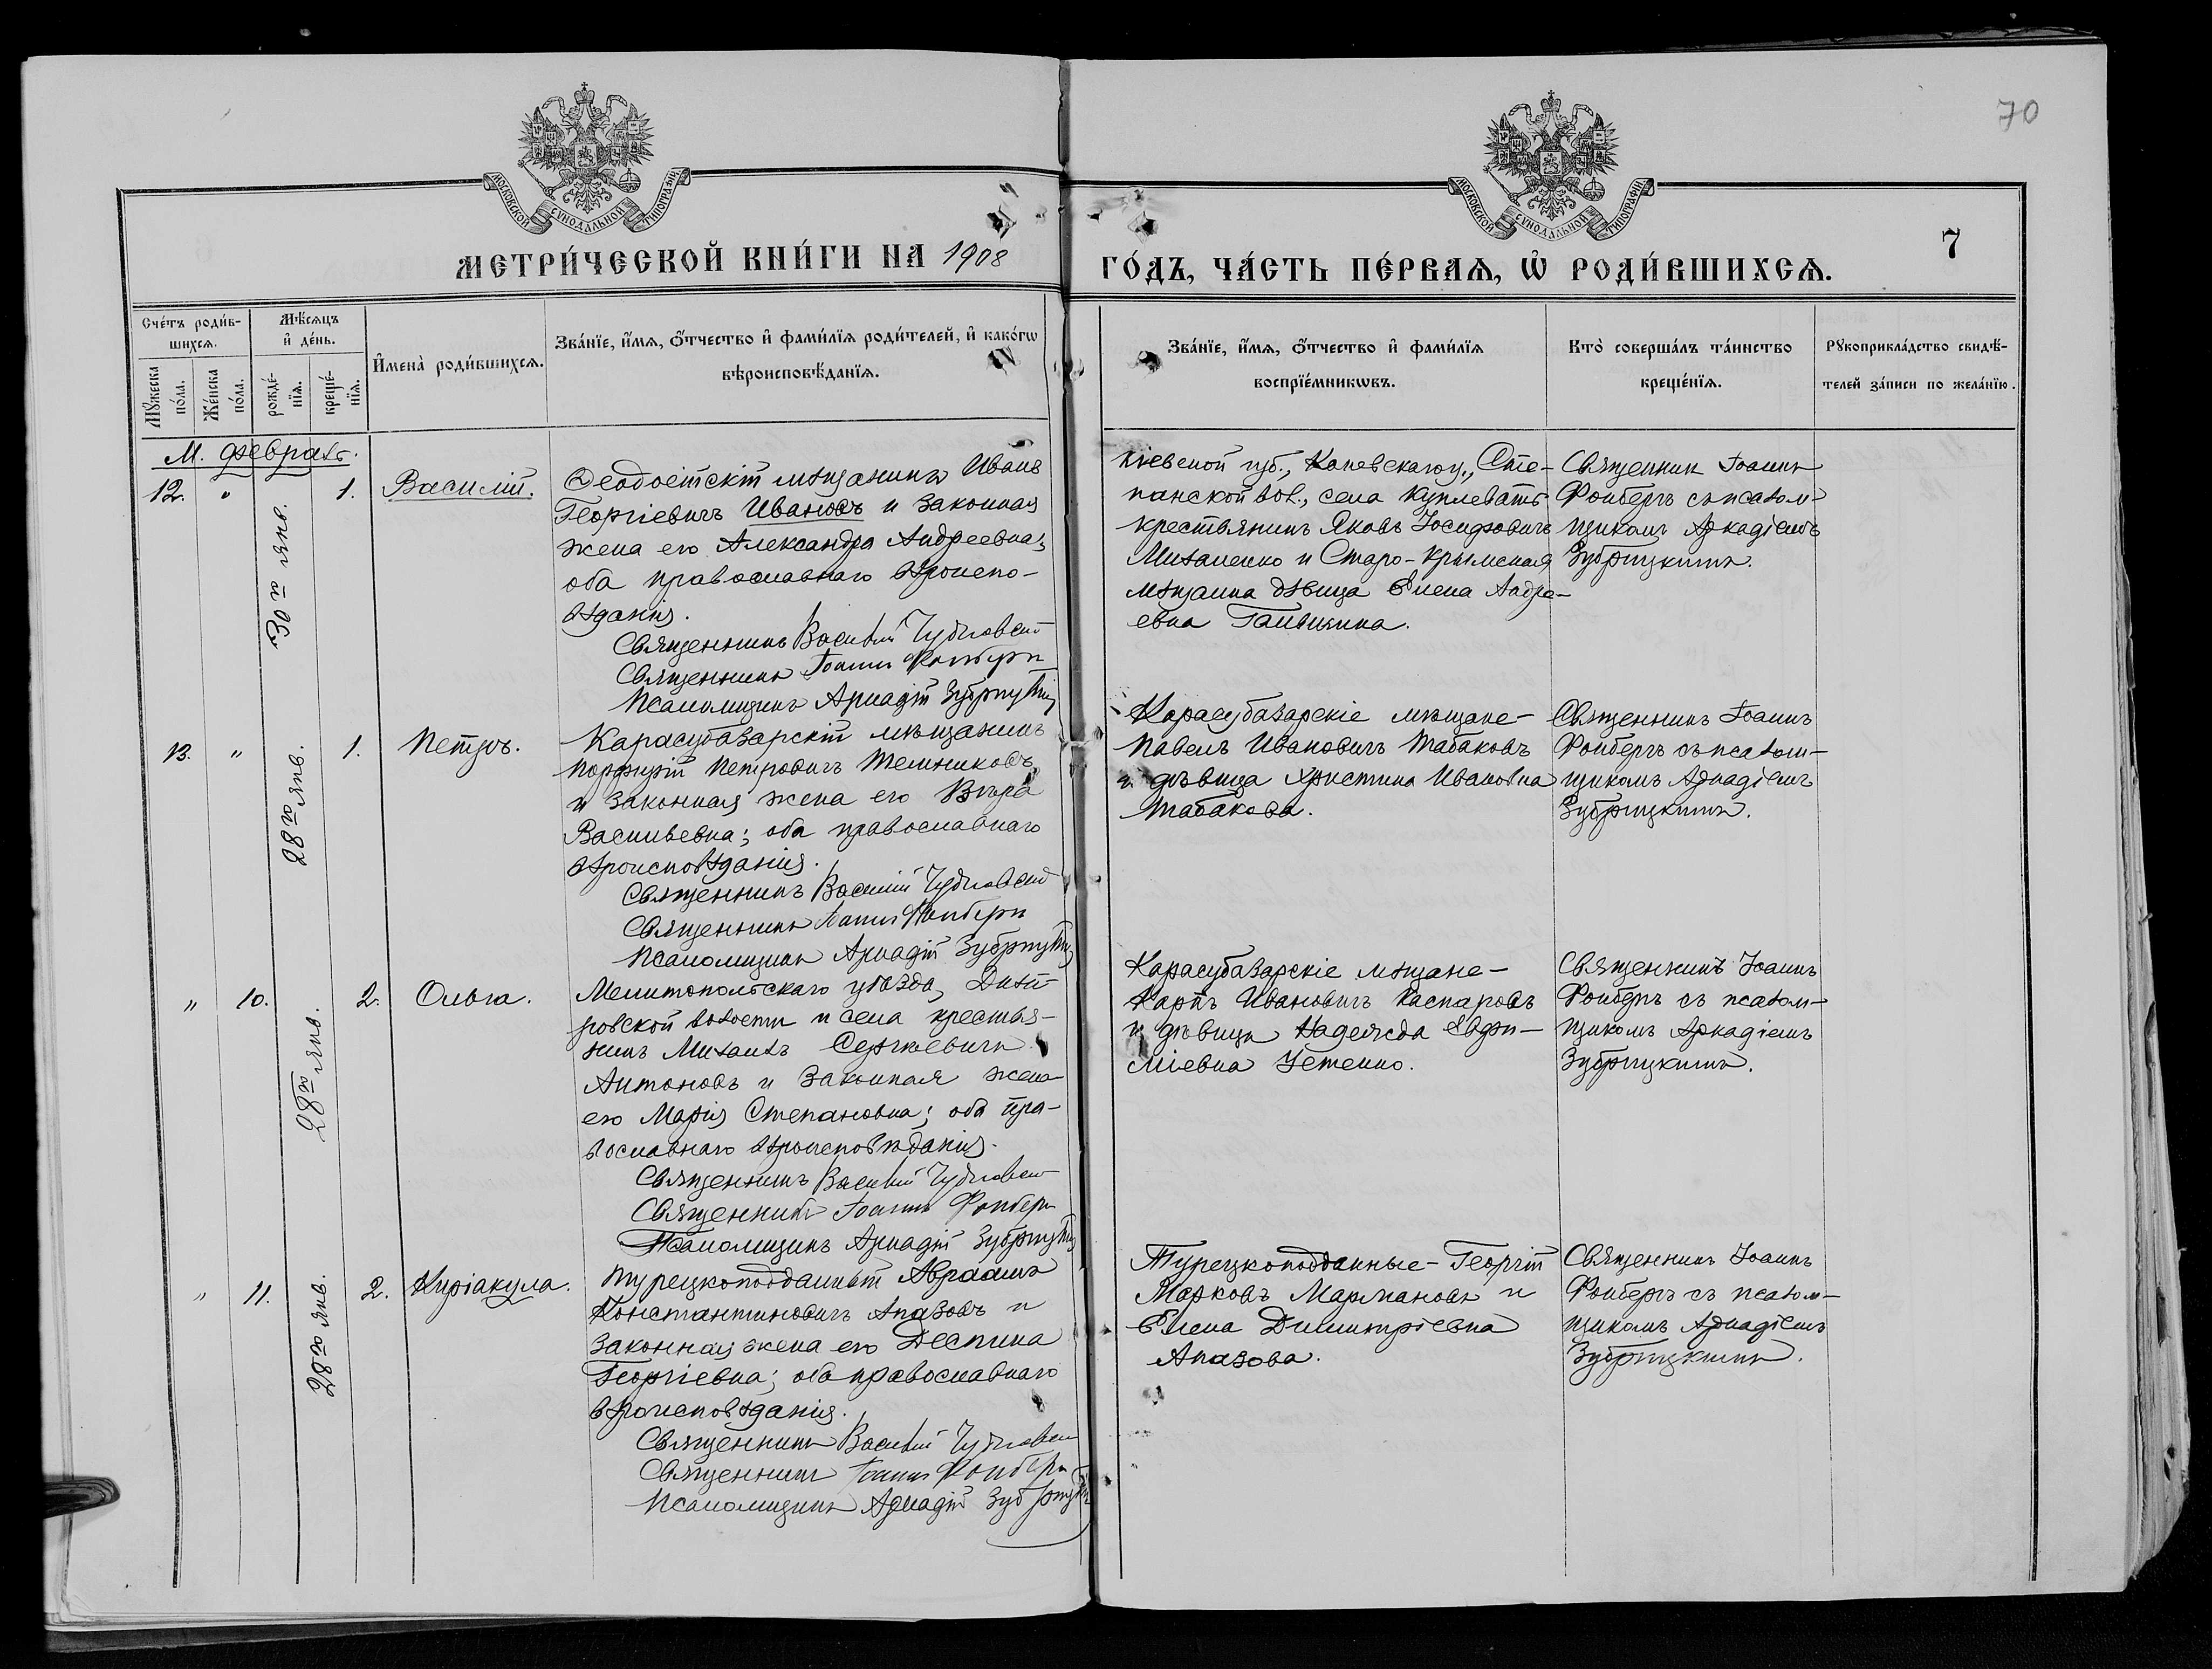 70
МОСКОВСКОЙ СѴНОДАЛЬНОЙ ТИПОГРАФІИ
МОСКОВСКОЙ СѴНОДАЛЬНОЙ ТИПОГРАФІИ
МЕТРИ́ЧЕСКОЙ КНИ́ГИ НА 1908
ГО́ДЪ, ЧА́СТЬ ПЕ́РВАѦ, Ѡ҆ РОДИ́ВШИХСѦ.
7
Сче́тъ роди́в-
шихсѧ.
Мꙋ́жеска
по́ла.
Же́нска
по́ла.
Мѣ́сѧцъ
и҆ де́нь.
рожде́-
нїѧ.
креще́-
нїѧ.
И҆мена̀ роди́вшихсѧ.
Зва́нїе, и҆́мѧ, ѻ҆́тчество и҆ фами́лїѧ роди́телей, и҆ како́гѡ
вѣроисповѣ́данїѧ.
Зва́нїе, и҆́мѧ, ѻ҆́тчество и҆ фами́лїѧ
воспрїе́мникѡвъ.
Кто̀ соверша́лъ та́инство
креще́нїѧ.
Рꙋкоприкла́дство свидѣ́-
телей за́писи по жела́нїю.
М. Февраль.
12.
"
30го янв.
1.
Василій.
Ѳеодосійскій мѣщанинъ Иванъ
Георгіевичъ Ивановъ и законная
жена его Александра Андреевна;
оба православнаго вѣроиспо-
вѣданія.
Священникъ Василій
Священникъ Іоаннъ Фонберъ
Псаломщикъ Аркадій Зубрицкій
Кіевской губ., Каневскаго у., Сте-
панской вол., села
крестьянинъ Яковъ Іосифовичъ
и Старо-Крымская
мѣщанка дѣвица Елена Андре-
евна
Священникъ Іоаннъ
Фонбергъ съ псалом-
щикомъ Аркадіемъ
Зубрицкимъ.
13.
"
28го янв.
1.
Петръ.
Карасубазарскій мѣщанинъ
Порфирій Петровичъ Темниковъ
и законная жена его Вѣра
Васильевна; оба православнаго
вѣроисповѣданія.
Священникъ Василій
Священникъ Іоаннъ Фонбергъ
Псаломщикъ Аркадій Зубрицкій
Карасубазарскіе мѣщане-
Павелъ Ивановичъ Табаковъ
и дѣвица Христина Ивановна
Табакова.
Священникъ Іоаннъ
Фонбергъ съ псалом-
щикомъ Аркадіемъ
Зубрицкимъ.
"
10.
28го янв.
2.
Ольга.
Мелитопольскаго уѣзда,
ровской волости и села крестья-
нинъ Михаилъ Сергѣевичъ
Антоновъ и законная жена
его Марія Степановна; оба пра-
вославнаго вѣроисповѣданія.
Священникъ Василій
Священникъ Іоаннъ Фонбергъ
Псаломщикъ Аркадій Зубрицкій
Карасубазарскіе мѣщане-
Карпъ Ивановичъ Каспаровъ
и дѣвица Надежда Евфи-
міевна
Священникъ Іоаннъ
Фонбергъ съ псалом-
щикомъ Аркадіемъ
Зубрицкимъ.
"
11.
28го янв.
2.
Киріакула.
Турецкоподданный Авраамъ
Константиновичъ Апазовъ и
законная жена его Деспина
Георгіевна; оба православнаго
вѣроисповѣданія.
Священникъ Василій
Священникъ Іоаннъ Фонбергъ
Псаломщикъ Аркадій Зубрицкій
Турецкоподданные- Георгій
Марковъ и
Елена Димитріевна
Апазова.
Священникъ Іоаннъ
Фонбергъ съ псалом-
щикомъ Аркадіемъ
Зубрицкимъ.